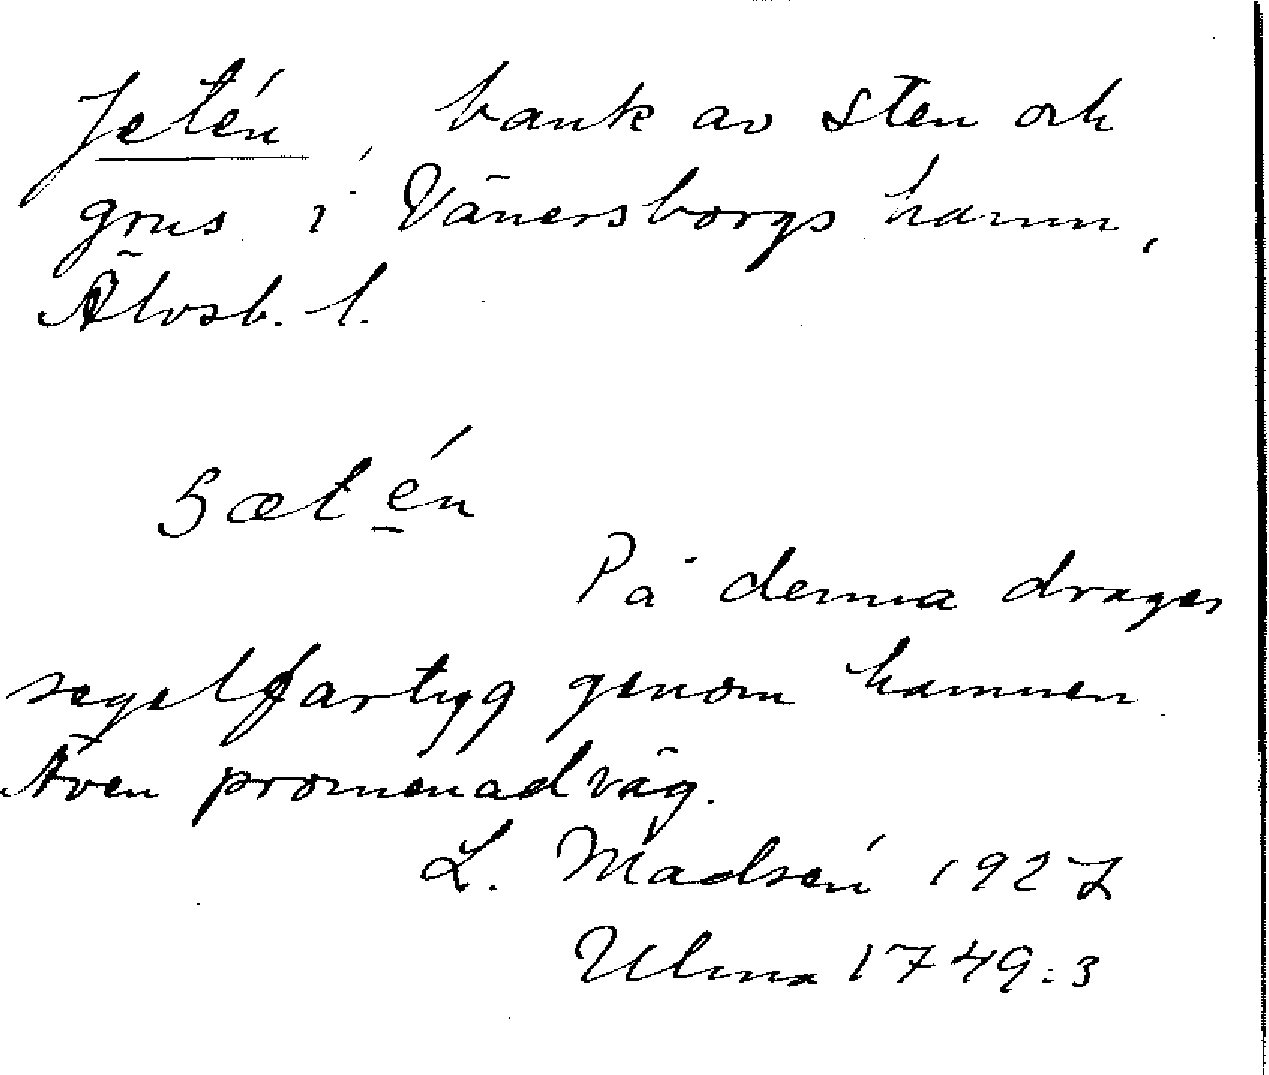 Jetén, bank av sten och
grus i Vänersborgs hamn,
Älvsb. l.
ʒætén
På denna drages
segelfartyg genom hamnen.
Även promenadväg.
L. Madsén 1927
Ulma 1749:3